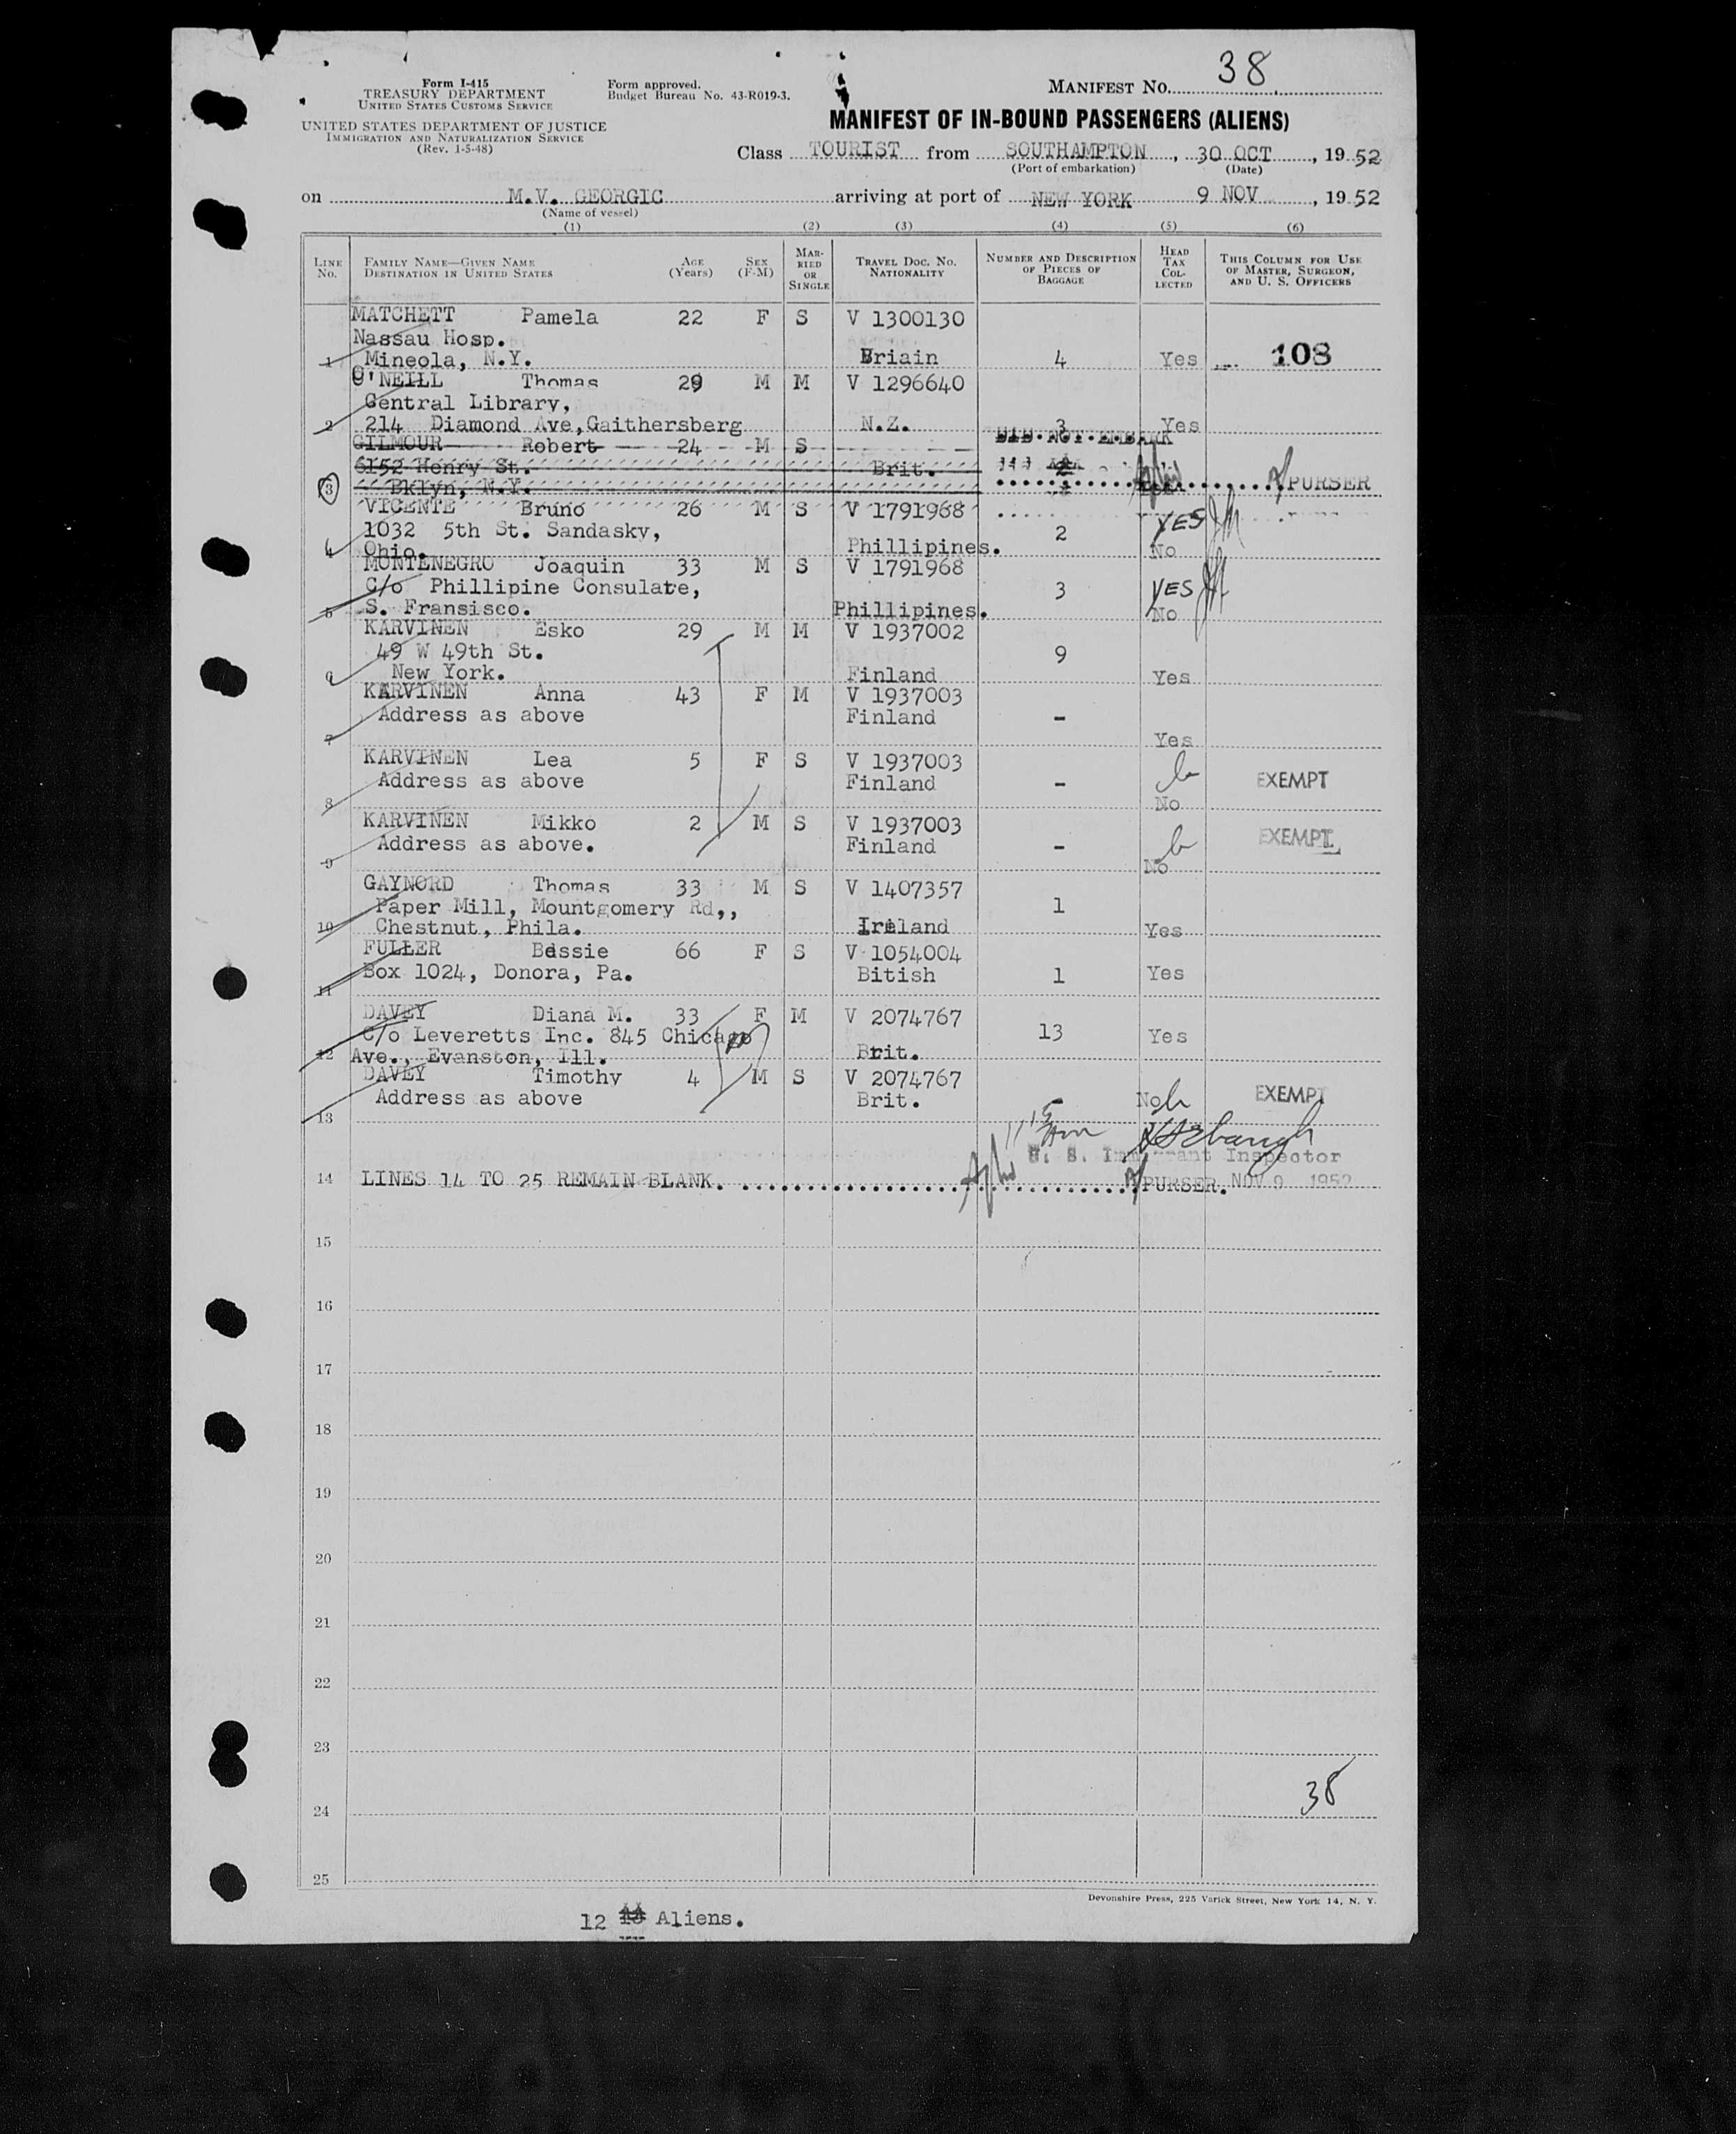 38
Form I-415
TREASURY DEPARTMENT
UNITED STATES CUSTOMS SERVICE
Form approved.
Budget Bureau No. 43-R019-3.
MANIFEST No.
UNITED STATES DEPARTMENT OF JUSTICE
IMMIGRATION AND NATURALIZATION SERVICE
(Rev. 1-5-48)
MANIFEST OF IN-BOUND PASSENGERS (ALIENS)
Class TOURIST from SOUTHAMPTON, 30 OCT, 19 52
(Port of embarkation) (Date)
on M.V. GEORGIC arriving at port of NEW YORK 9 NOV, 19 52
(Name of vessel)
(1) (2) (3) (4) (5) (6)
LINE No. FAMILY NAME—GIVEN NAME DESTINATION IN UNITED STATES AGE (Years) SEX (F-M) MARRIED OR SINGLE TRAVEL DOC. NO. NATIONALITY NUMBER AND DESCRIPTION OF PIECES OF BAGGAGE HEAD TAX COLLECTED THIS COLUMN FOR USE OF MASTER, SURGEON, AND U. S. OFFICERS
MATCHETT Pamela 22 F S V 1300130
Nassau Hosp.
1 Mineola, N.Y. Briain 4 Yes 108
O'NEILL Thomas 29 M M V 1296640
Central Library,
2 214 Diamond Ave,Gaithersberg N.Z. 3 Yes
GILMOUR Robert 24 M S DID NOT EMBARK
6152 Henry St. Brit. 2
3 Bklyn, N.Y. PURSER
VICENTE Bruno 26 M S V 1791968
1032 5th St. Sandasky, 2 YES
4 Ohio. Phillipines. No
MONTENEGRO Joaquin 33 M S V 1791968
C/o Phillipine Consulate, 3 YES
5 S. Fransisco. Phillipines. No
KARVINEN Esko 29 M M V 1937002
49 W 49th St. 9
6 New York. Finland Yes
KARVINEN Anna 43 F M V 1937003
Address as above Finland -
7 Yes
KARVINEN Lea 5 F S V 1937003
Address as above Finland - EXEMPT
8 No
KARVINEN Mikko 2 M S V 1937003 EXEMPT
Address as above. Finland -
9 No
GAYNORD Thomas 33 M S V 1407357
Paper Mill, Mountgomery Rd,, 1
10 Chestnut, Phila. Ireland Yes
FULLER Bessie 66 F S V 1054004
Box 1024, Donora, Pa. Bitish 1 Yes
11
DAVEY Diana M. 33 F M V 2074767
C/o Leveretts Inc. 845 Chicago 13 Yes
12 Ave., Evanston, Ill. Brit.
DAVEY Timothy 4 M S V 2074767
Address as above Brit. - No EXEMPT
13
U. S. Immigrant Inspector
14 LINES 14 TO 25 REMAIN BLANK. PURSER. NOV 9 1952
15
16
17
18
19
20
21
22
23
38
24
25
Devonshire Press, 225 Varick Street, New York 14, N. Y.
12 Aliens.